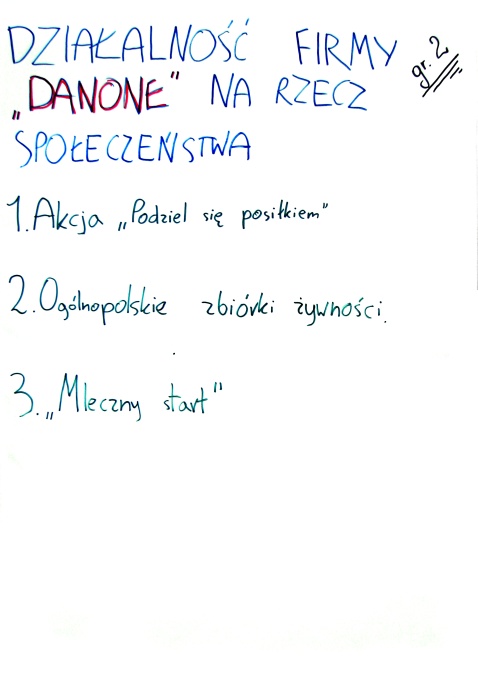 DZIAŁALNOŚĆ FIRMY
„DANONE" NA RZECZ
SPOŁECZEŃSTWA
gr. 2
1. Akcja „Podziel się posiłkiem"
2. Ogólnopolskie zbiórki żywności.
3. „Mleczny start"